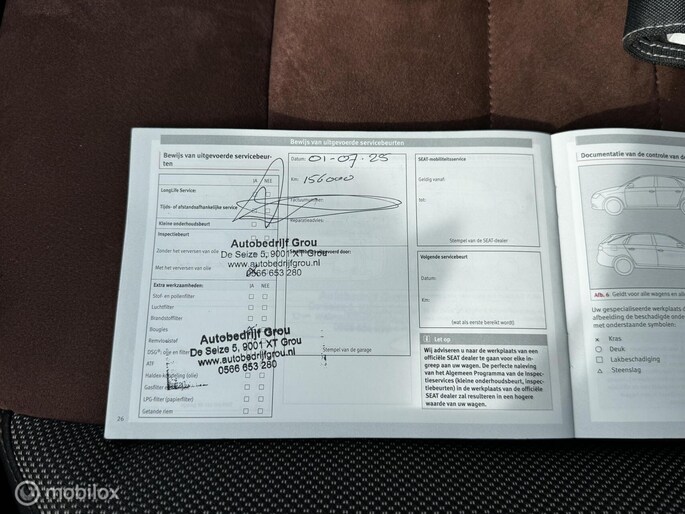 Bewijs van uitgevoerde servicebeurten
Bewijs van uitgevoerde servicebeur-
ten
JA NEE
LongLife Service:
Tijds- of afstandsafhankelijke service
Kleine onderhoudsbeurt
Inspectiebeurt
Zonder het verversen van olie
Met het verversen van olie
Extra werkzaamheden: JA NEE
Stof- en pollenfilter
Luchtfilter
Brandstoffilter
Bougies
Remvloeistof
ATF
LPG-filter (papierfilter)
Getande riem
26
Autobedrijf Grou
De Seize 5, 9001 XT Grou
www.autobedrijfgrou.nl
0566 653 280
Autobedrijf Grou
De Seize 5, 9001 XT Grou
www.autobedrijfgrou.nl
0566 653 280
Datum: 01-07-25
Km: 156000
Stempel van de garage
SEAT-mobiliteitsservice
Geldig vanaf:
tot:
Stempel van de SEAT-dealer
Volgende servicebeurt
Datum:
Km:
(wat als eerste bereikt wordt)
Let op
Wij adviseren u naar de werkplaats van een
officiële SEAT dealer te gaan voor elke in-
greep aan uw wagen. De perfecte naleving
van het Algemeen Programma van de Inspec-
tieservices (kleine onderhoudsbeurt, inspec-
tiebeurten) in de werkplaats van de officiële
SEAT dealer zal resulteren in een hogere
waarde van uw wagen.
Documentatie van de controle van de
Afb. 6 Geldt voor alle wagens en
Uw gespecialiseerde werkplaats d
afbeelding de beschadigde onder
met onderstaande symbolen:
× Kras
○ Deuk
□ Lakbeschadiging
△ Steenslag
mobilox